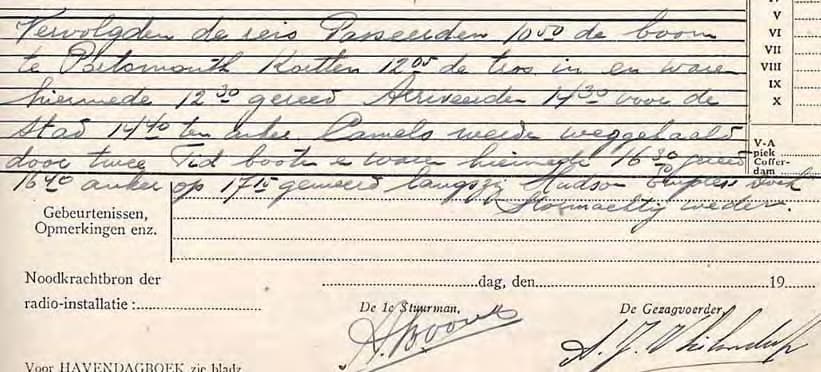 Vervolgden de reis Passeerden 10⁵⁰ de boom
te Portsmouth Kortten 12⁰⁵ de tros in en waren
hiermede 12³⁰ gereed Arriveerden 14³⁰ voor de
stad 14⁴⁰ ten anker. Camels werden weggehaald
door twee Tid booten waren hiermede 16³⁰ gereed
16⁴⁰ anker op 17¹⁵ gemeerd langszij Hudson Empress Dock
Stormachtig weder.
V
VI
VII
VIII
IX
X
V-A
piek
Coffer-
dam
Gebeurtenissen,
Opmerkingen enz.
Noodkrachtbron der
radio-installatie :
dag, den 19
De 1e Stuurman,
De Gezagvoerder,
Voor HAVENDAGBOEK zie bladz.